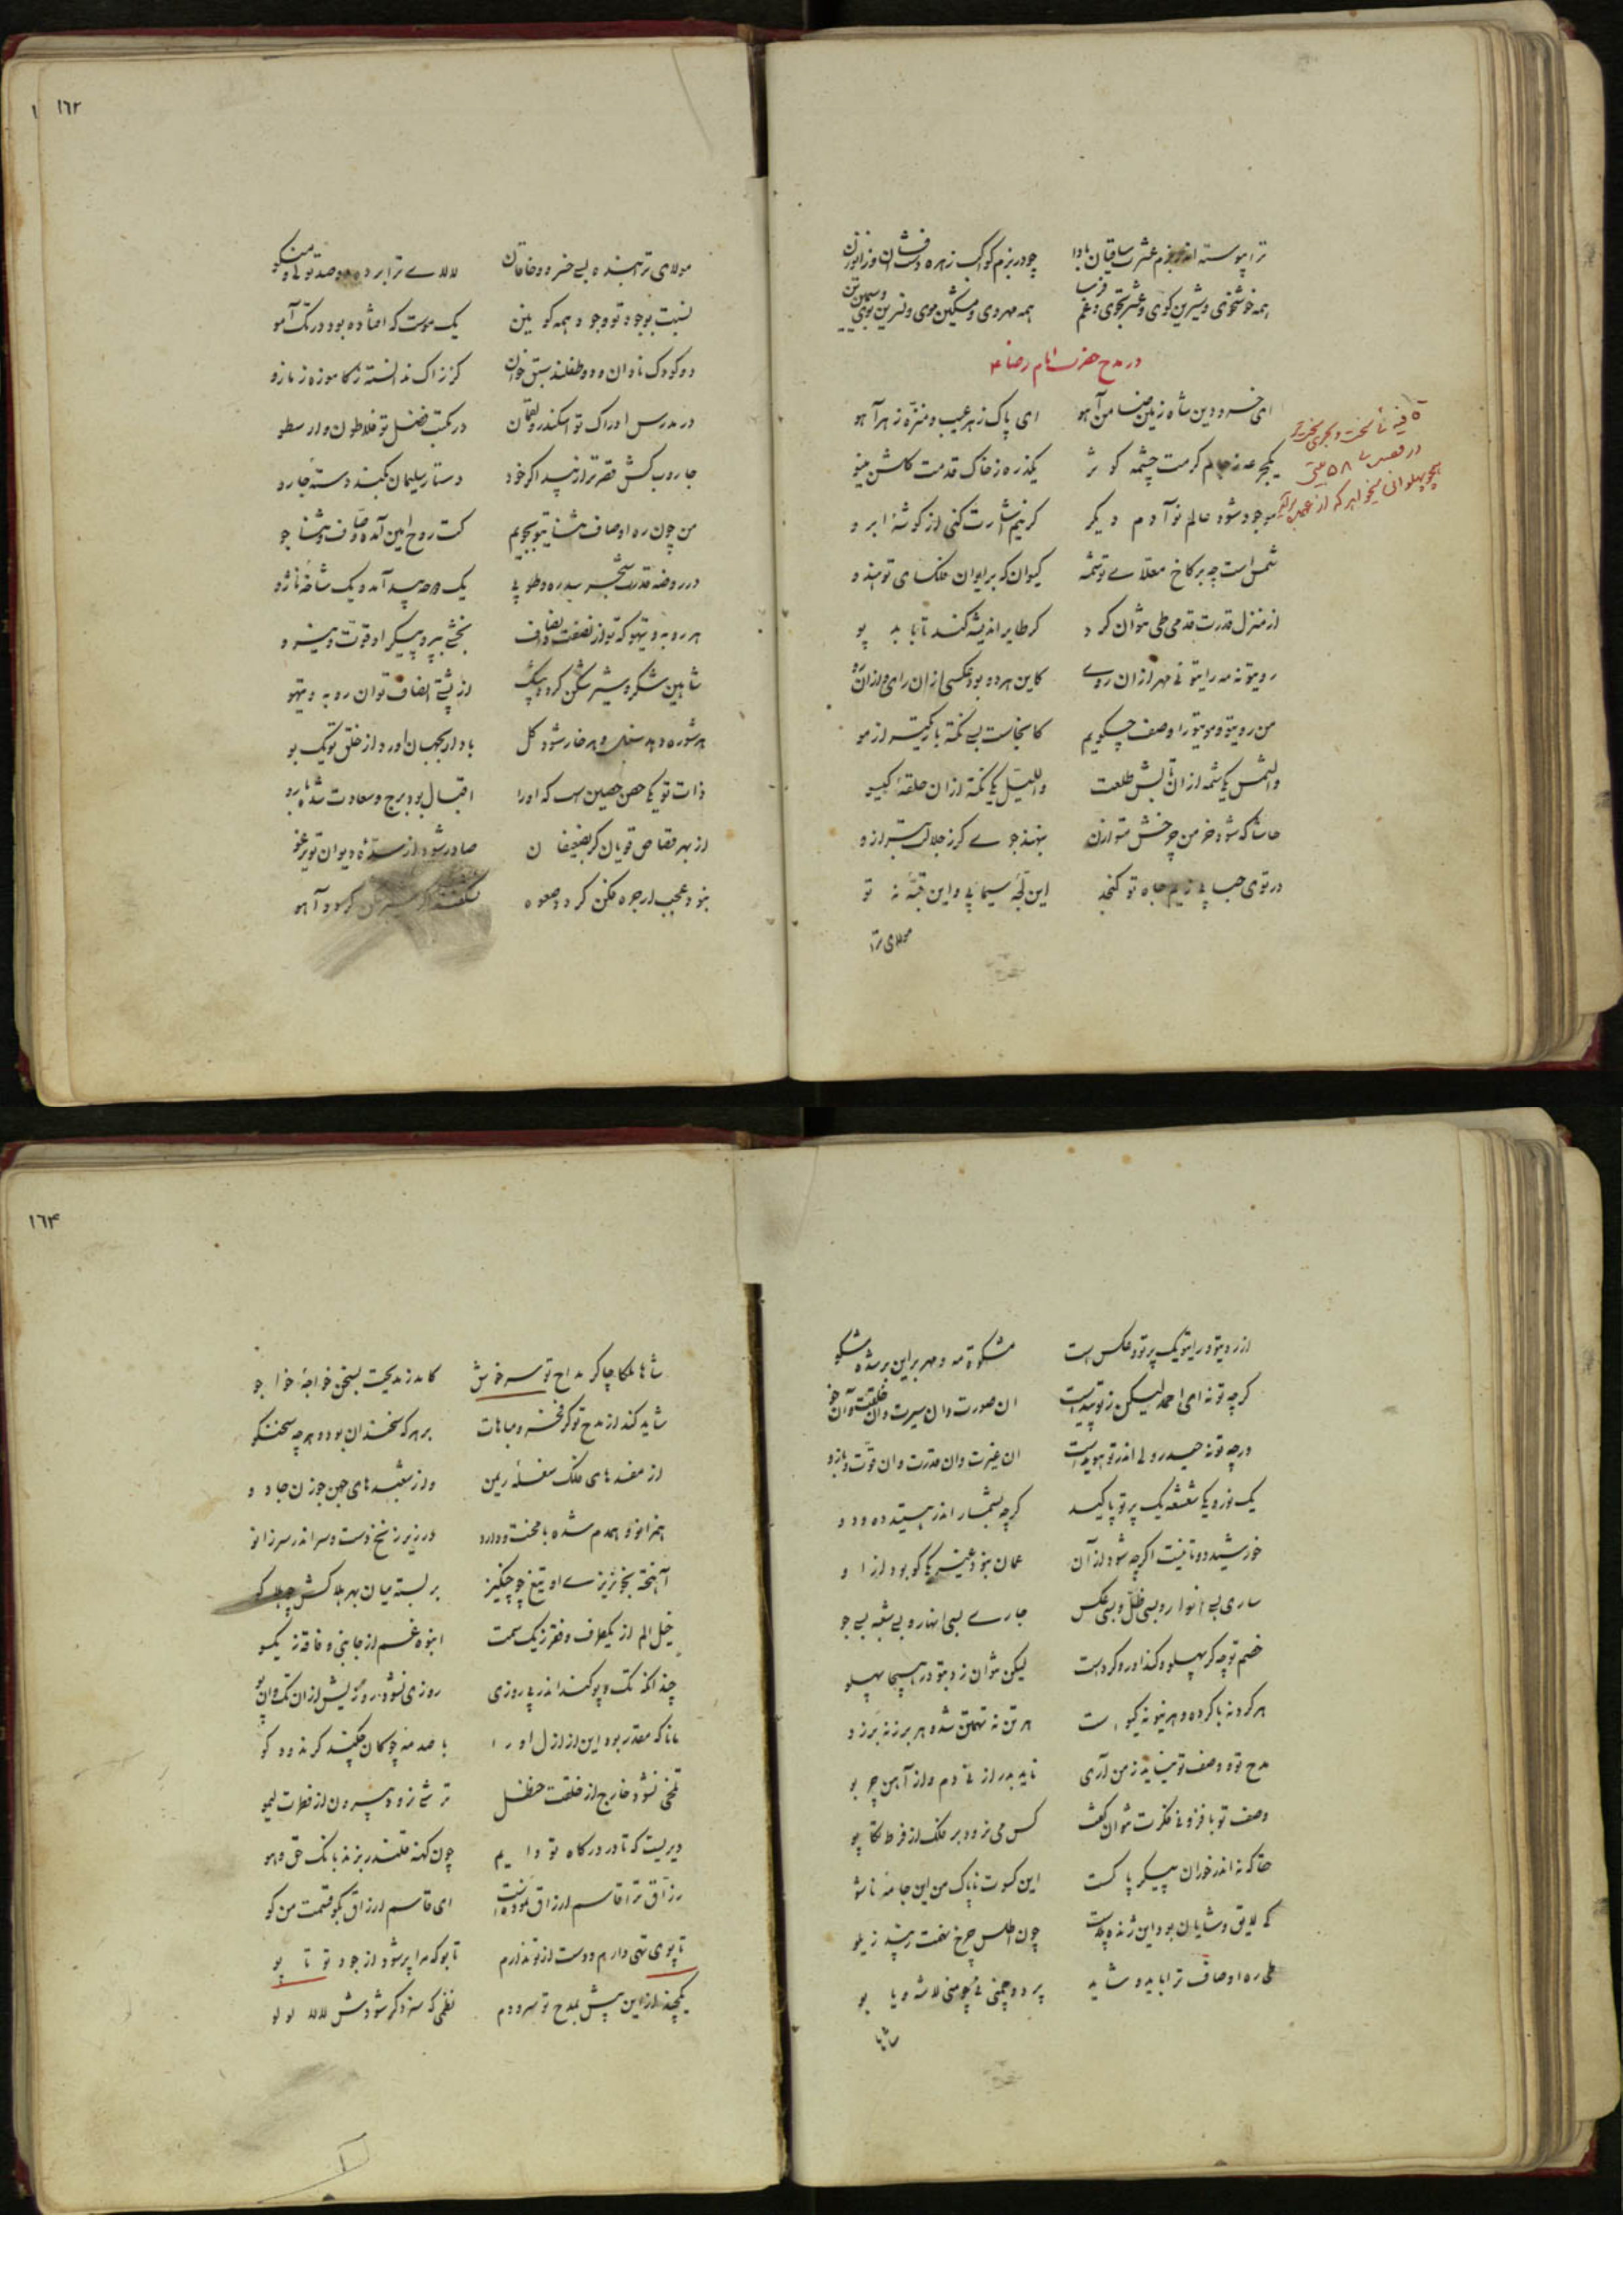 ترا پیوسته اندر بزم عشرت ساقیان بادا چو در بزم کواکب زهره
همه خوشخوی و شیرین کوی و عشرتجوی و غم همه مهروی و مشکین موی و نسرین بوی
در مدح حضرت امام رضا ع
ای خسرو دین شاه زمین ضامن آهو ای پاک ز هر عیب و منزه ز هر آهو
یکجرعه ز جام کرمت چشمه کوثر یکذره ز خاک قدمت کلشن مینو
موجود شود عالم نو آدم دیکر کر نیم اشارت کنی از کوشه ابرو
شمس است چه بر کاخ معلای تو شمسه کیوان که بر ایوان فلکسای تو هندو
از منزل قدرت قدمی طی نتوان کرد کر طایر اندیشه کند تا بابد پو
رویتو نه مه رایتو نی مهر از ان روی کاین هر دو بود عکسی از ان رای و از ان رو
من رویتو و مویتو را وصف چکویم کاینجاست بسی نکته باریکتر از مو
والشمس یکی شمه از ان تابش طلعت واللیل یکی نکته از ان حلقه کیسو
حاشا که شود خرمن چرخش متوازن بنهند جوی کر ز جلالت بترازو
در توی حبابی ز یم جاه تو کنجد این لجه سیمابی و این قبه نه تو
مولای ترا
۱۶۲
مولای ترا بنده بسی خسرو و خاقان لالای ترا برده دو صد
نسبت بوجود تو وجود همه کونین یک موست که افتاده بود در تک آمو
دو کودک نادان و دو طفلند سبق خوان کز زاک ندانسته ز کاموزه ز مازو
در مدرس ادراک تو اسکندر و لقمان در مکتب فضل تو فلاطون و ارسطو
جاروب کش قصر ترا زیبد اکر خود دستار سلیمان بکند دسته جارو
من چون ره اوصاف بتو پویم کت روح امین آمده وصاف و ثنا جو
در روضه قدرت شجر سدره و طوبی یک دوحه پید آمد و یک شاخه ناژو
هر روبه و تیهو که تو از نصفت و انصاف بخشی ببر و پیکر او قوت و نیرو
شاهین شکر و شیر شکن کردد بیشک از پشتی انصاف تو ان روبه و تیهو
هر شوره دمد سنبل و هر خار شود کل باد ار بجهان آورد از خلق تو یک بو
ذات تو یکی حصن حصین است که اورا اقبال بود برج و سعادت شده بارو
از بهر قصاص قویان کر بضعیفان صادر شود از سده دیوان تو یرغو
نبود عجب ار جره شکن کردد صعوه نشکفت اکر شیر شکن کردد آهو
از رویتو و رایتو یک پرتو و عکس است مشکوة مه و مهر بر این بر شده مشکو
کر چه تو نه ای احمد لیکن ز تو پیداست ان صورت و ان سیرت و ان خلقت و آن خو
ور چه تو نه حیدر ولی اندر تو هویداست ان غیرت و ان قدرت و ان قوت و بازو
یک نور و یکی شعشعه یک پرتو پاکید کر چه بشمار اندر هستید ده و دو
خورشید دو تا نیست اکر چه شود از آن عمان نبود غیر یکی کو بود از او
ساری بسی انوار و بسی ظل و بسی عکس جاری بسی انهار و بسی شعبه بسی جو
خصم تو چه کر پهلو و کندآور و کرد است لیکن نتوان زد بتو در هیجا پهلو
هر کرد نه با کرده و هر نیو نه کیو است هر تن نه تهمتن شده هر برز نه برزو
مدح تو و وصف تو نیاید ز من آری ناید بدر از نی دم و از آهن چربو
وصف تو بافزونی فکرت نتوان کفت کس می نرود بر فلک از فرط تکاپو
حقا که نه اندر خور ان پیکر پاک است این کسوت ناپاک من این جامه ناشو
کی لایق و شایان بود این ژنده پلاست چون اطلس چرخ نهمت زیبد زیلو
طی ره اوصاف ترا باید و شاید پرد و چمنی نی چو منی لاشه و یابو
شاها
۱۶۴
شاها ملکا چاکر مداح تو سرخوش کامد ز مدیحت بسخن خواجه خواجو
شاید کند از مدح تو کر فخر و مباهات بر هر که سخندان بود و هر چه سخنکو
از مفسدهای فلک سفله ریمن وز شعبدهای جهن جوزن جادو
همزانو و همدم شده با محنت و با درد در زیر زنخ دست و سر اندر سر زانو
آهخته بخونریزی او تیغ چو چنکیز بربسته میان بهر بلاکش چو هلاکو
خیل الم از یکطرف و فقر ز یک سمت انبوه غم از جانبی و فاقه ز یکسو
چندانکه تک و پو کند اندر پی روزی روزی نشود روزیش از ان تک و ان پو
مانا که مقدر بود این از ازل او را با صدمه چوکان چکند کر ندود کو
تلخی نشود خارج از خلقت حنظل ترشی نرود بیرون از فطرت لیمو
دیریست که تا در درکاه تو دایم چون کهنه قلندر بزند بانک حق و هو
رزاق ترا قاسم ارزاق نموده است ای قاسم ارزاق بکو قسمت من کو
تاپوی تهی دارم و دست از تو ندارم تا بو که مرا پر شود از جود تو تاپو
یکچند ازاین پیش بمدح تو سرودم نظمی که سزد کر شودش لالا لولو